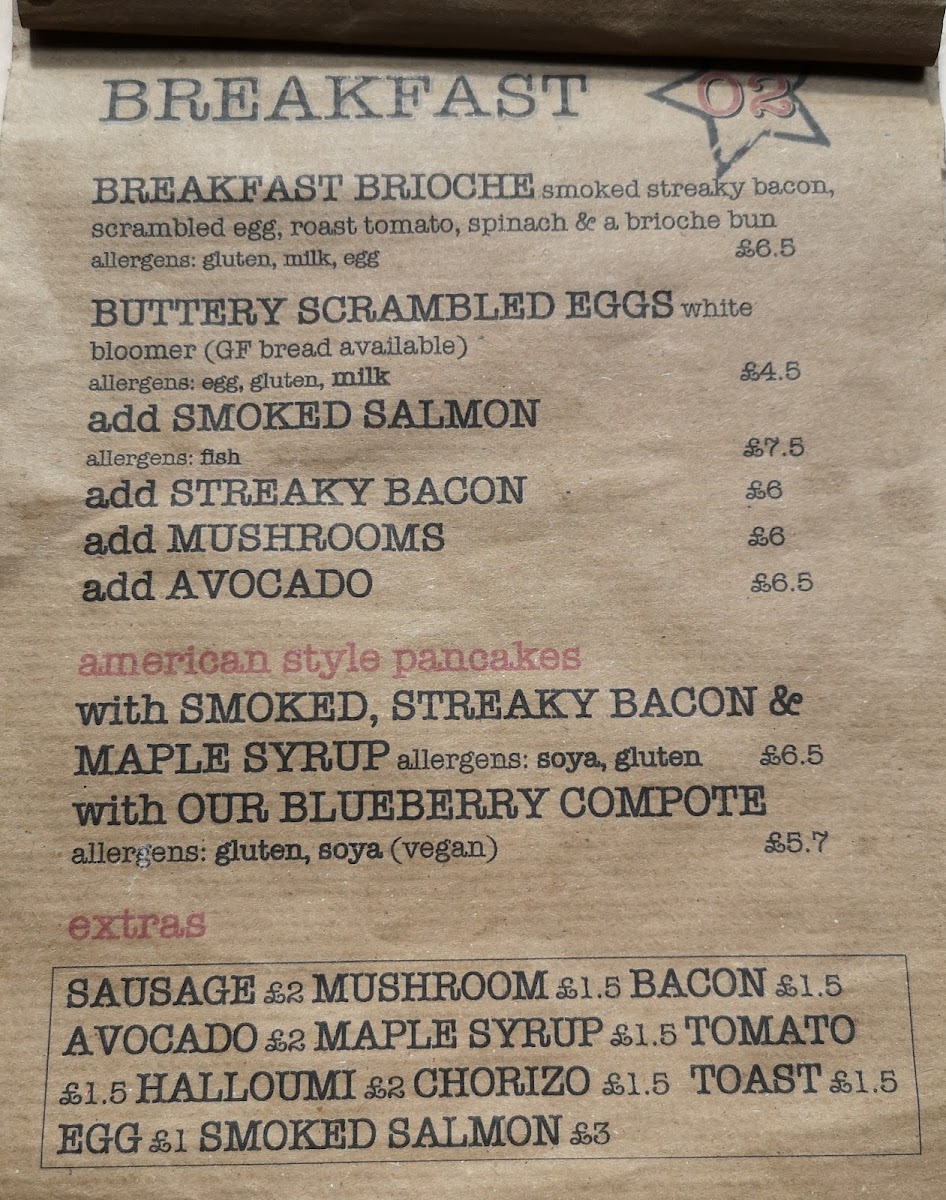 BREAKFAST 02
BREAKFAST BRIOCHE smoked streaky bacon,
scrambled egg, roast tomato, spinach & a brioche bun
allergens: gluten, milk, egg £6.5
BUTTERY SCRAMBLED EGGS white
bloomer (GF bread available)
allergens: egg, gluten, milk £4.5
add SMOKED SALMON
allergens: fish £7.5
add STREAKY BACON £6
add MUSHROOMS £6
add AVOCADO £6.5
american style pancakes
with SMOKED, STREAKY BACON &
MAPLE SYRUP allergens: soya, gluten £6.5
with OUR BLUEBERRY COMPOTE
allergens: gluten, soya (vegan) £5.7
extras
SAUSAGE £2 MUSHROOM £1.5 BACON £1.5
AVOCADO £2 MAPLE SYRUP £1.5 TOMATO
£1.5 HALLOUMI £2 CHORIZO £1.5 TOAST £1.5
EGG £1 SMOKED SALMON £3